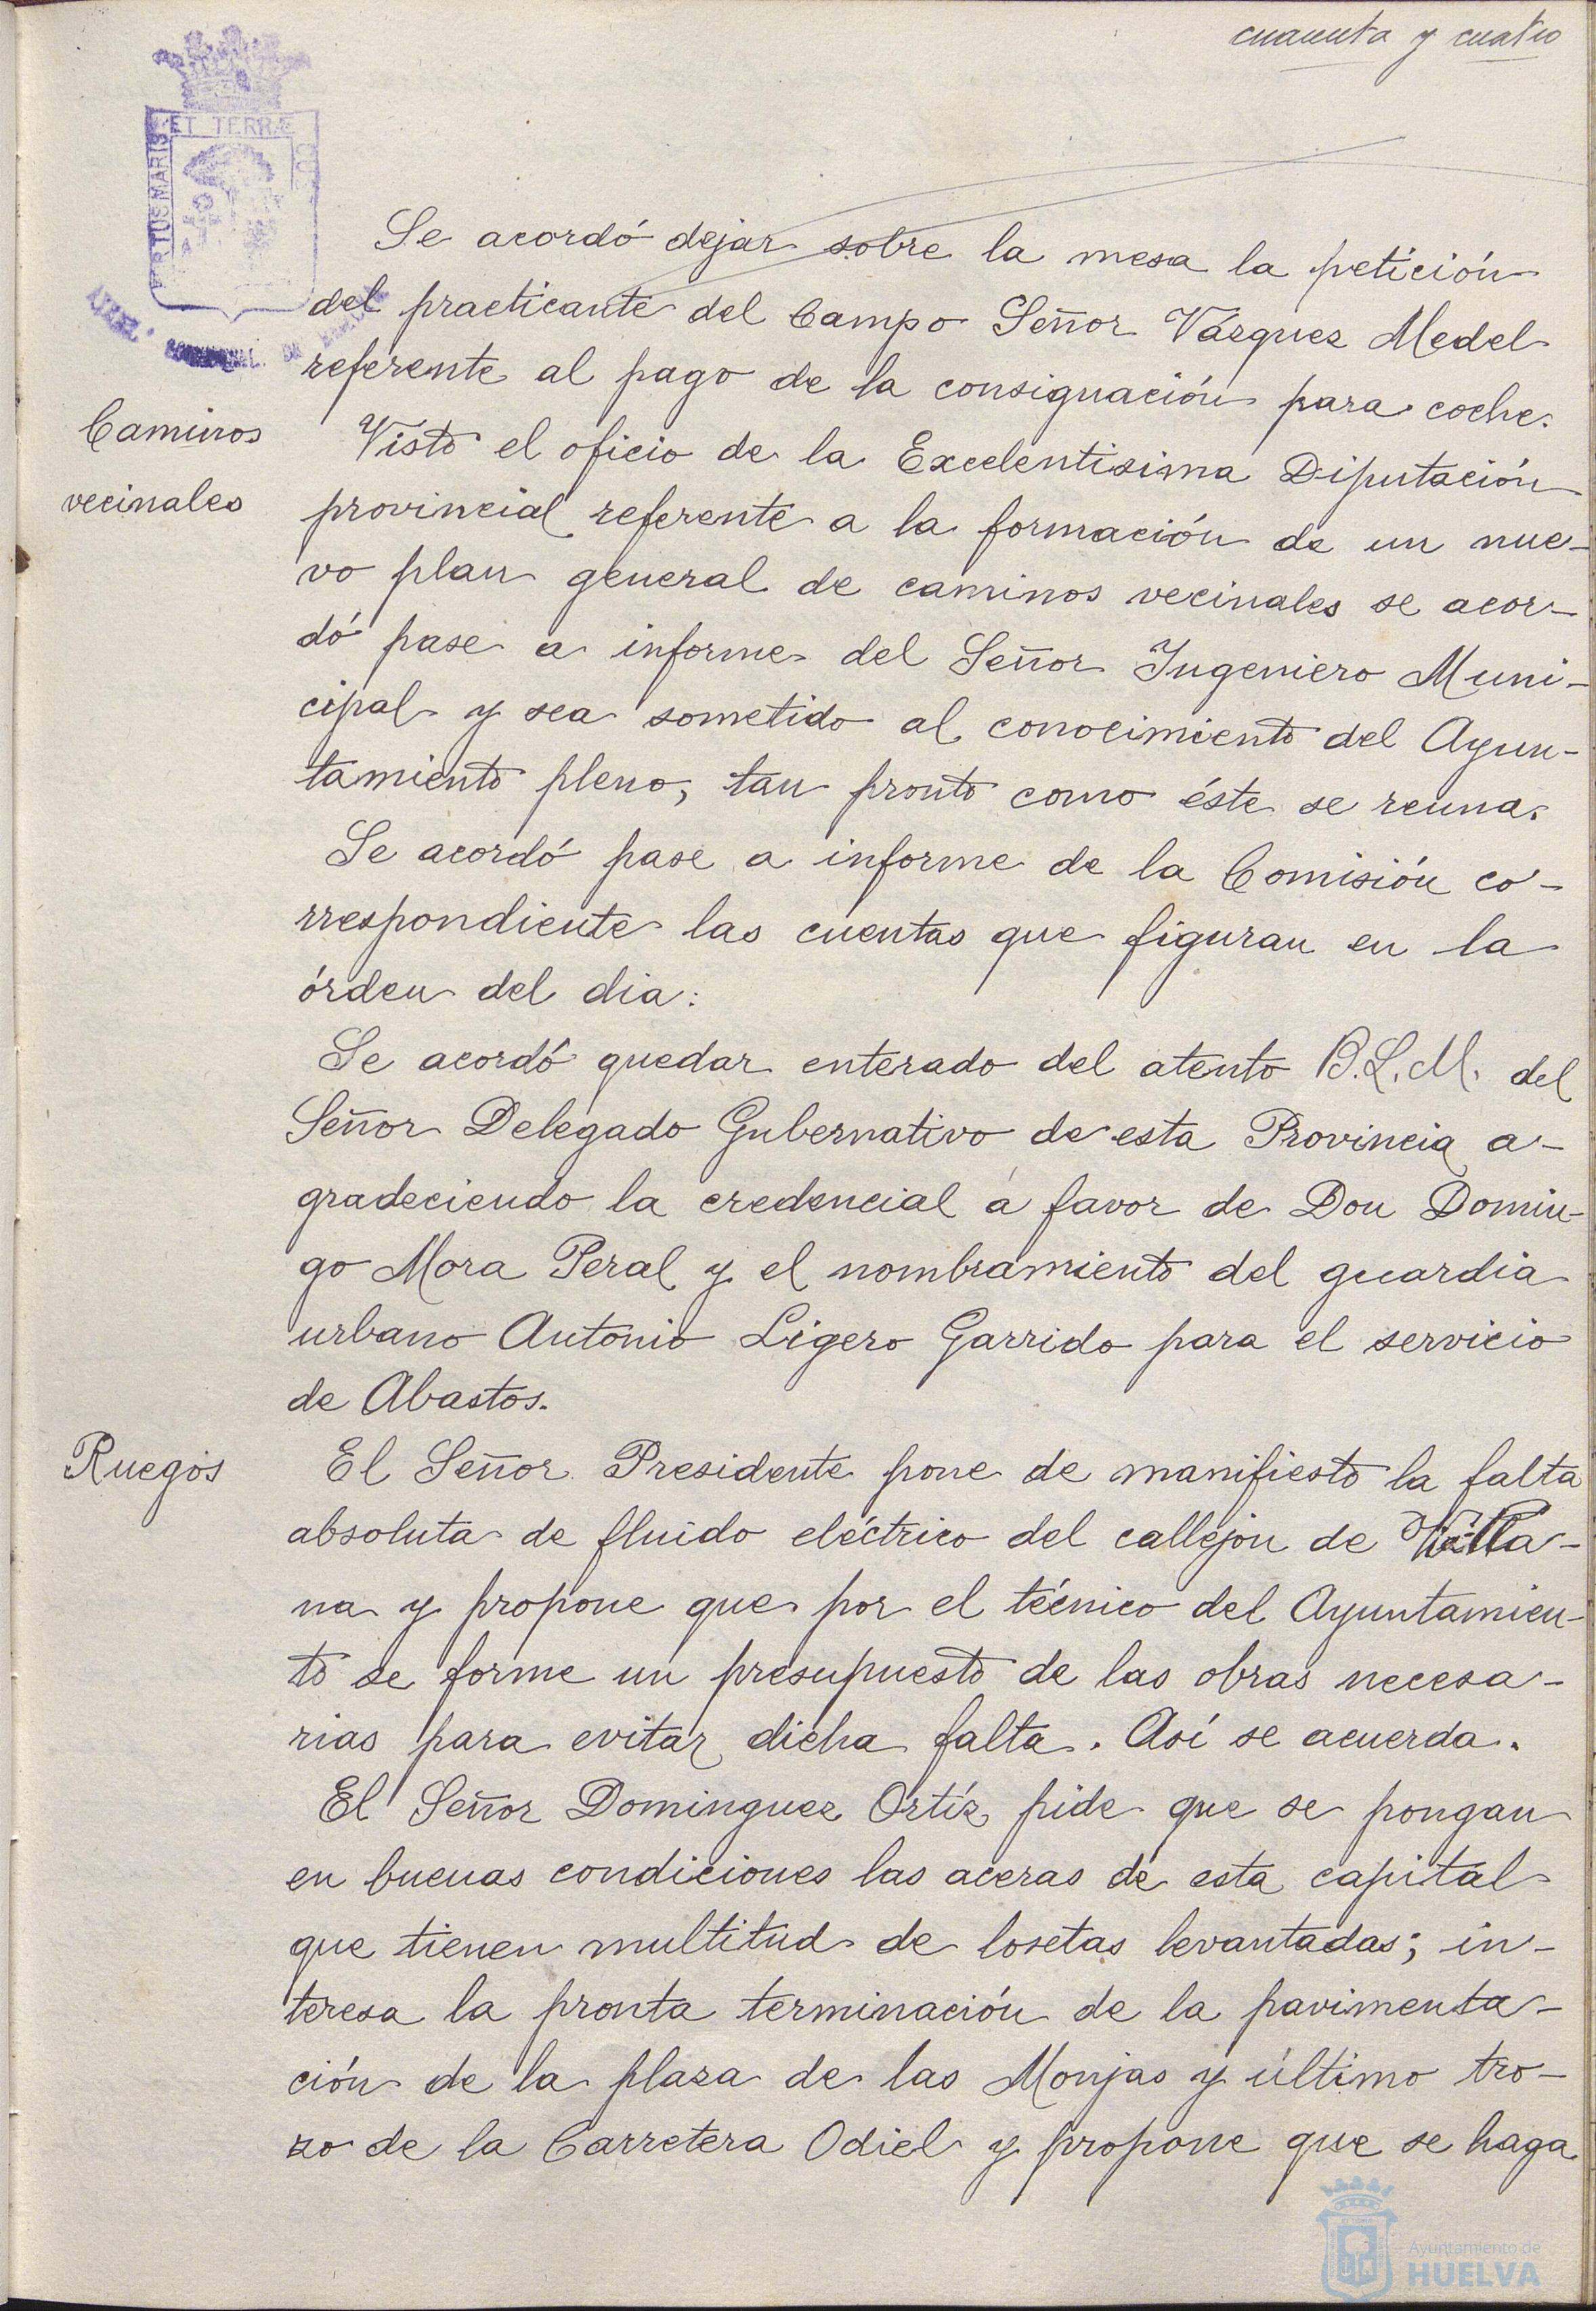 cuarenta y cuatro
ET TERRÆ
PORTUS MARIS
CUS
Se acordó dejar sobre la mesa la petición
del practicante del Campo Señor Vázquez Medel
referente al pago de la consignación para coche.
Caminos
vecinales
Visto el oficio de la Excelentisima Diputación
provincial referente a la formación de un nue-
vo plan general de caminos vecinales se acor-
dó pase a informe del Señor Ingeniero Muni-
cipal y sea sometido al conocimiento del Ayun-
tamiento pleno, tan pronto como éste se reuna.
Se acordó pase a informe de la Comisión co-
rrespondiente las cuentas que figuran en la
órden del dia:
Se acordó quedar enterado del atento B.L.M. del
Señor Delegado Gubernativo de esta Provincia a-
gradeciendo la credencial a favor de Don Domin-
go Mora Peral y el nombramiento del guardia
urbano Antonio Ligero Garrido para el servicio
de Abastos.
Ruegos
El Señor Presidente pone de manifiesto la falta
absoluta de fluido eléctrico del callejon de
na y propone que por el técnico del Ayuntamien-
to se forme un presupuesto de las obras necesa-
rias para evitar dicha falta. Así se acuerda.
El Señor Dominguez Ortíz pide que se pongan
en buenas condiciones las aceras de esta capital
que tienen multitud de losetas levantadas; in-
teresa la pronta terminación de la pavimenta-
ción de la plaza de las Monjas y último tro-
zo de la Carretera Odiel y propone que se haga
Ayuntamiento de
HUELVA